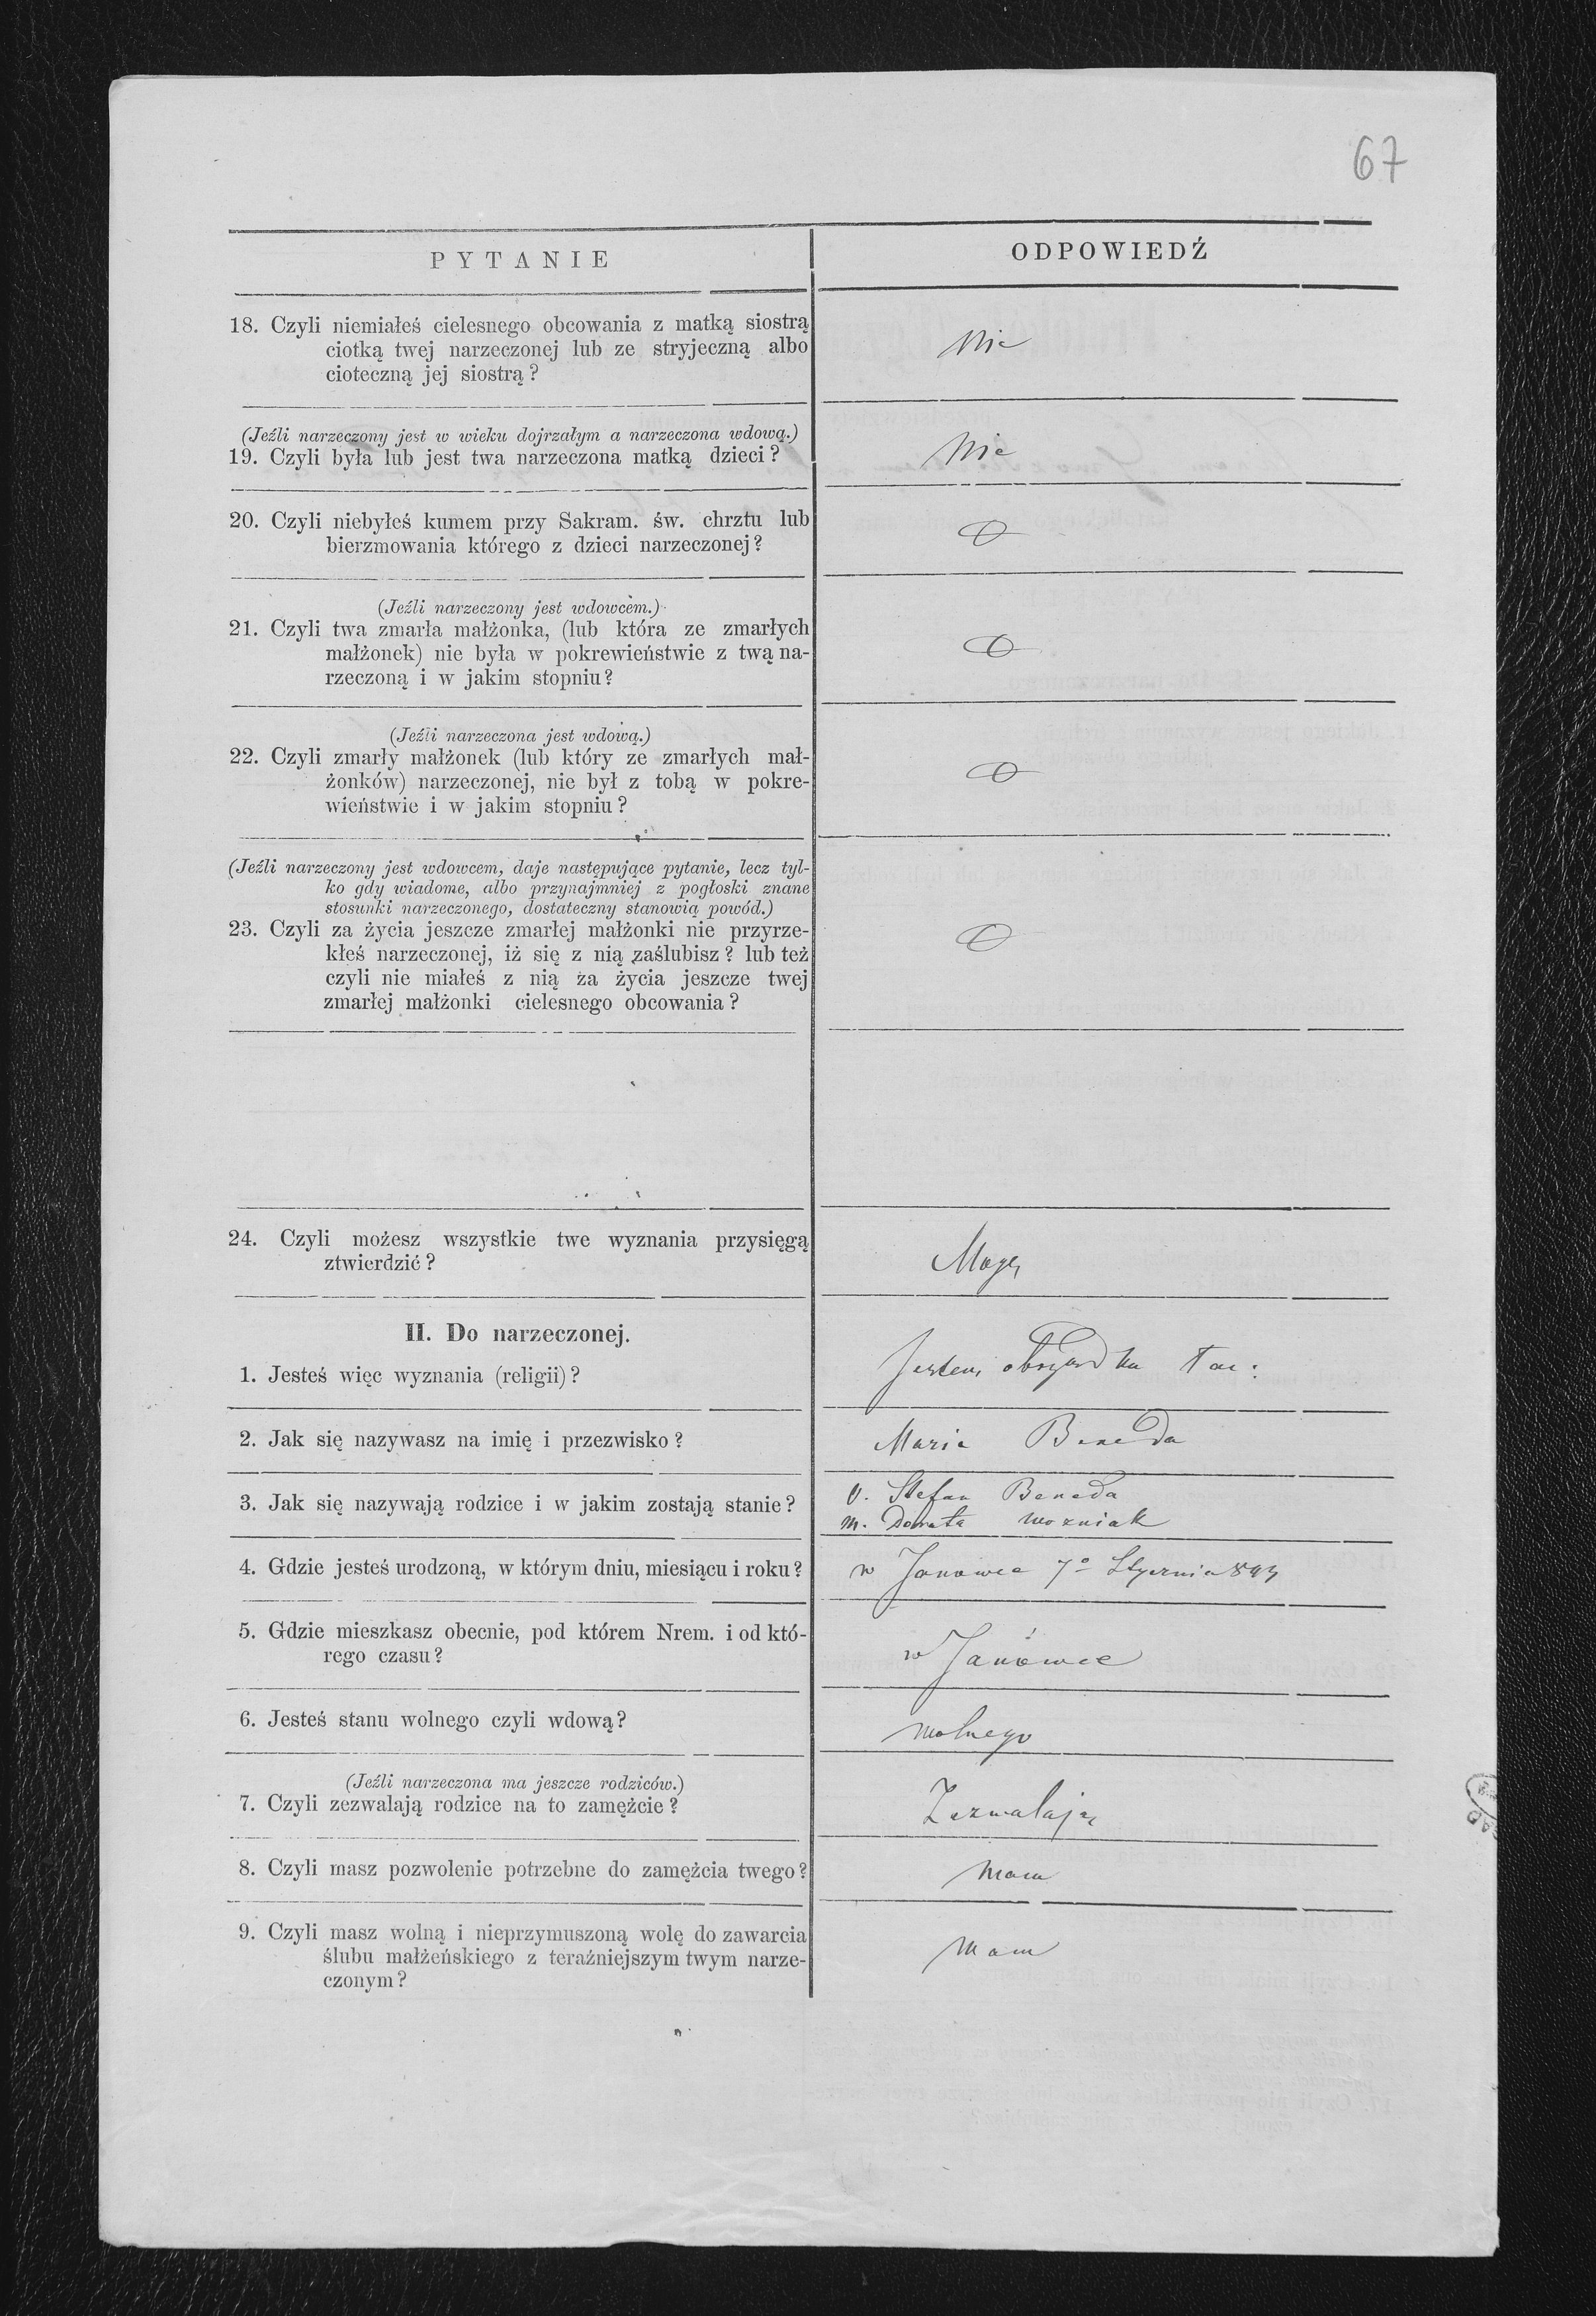 67
PYTANIE
ODPOWIEDŹ
18. Czyli niemiałeś cielesnego obcowania z matką siostrą
ciotką twej narzeczonej lub ze stryjeczną albo
cioteczną jej siostrą?
Nie
(Jeźli narzeczony jest w wieku dojrzałym a narzeczona wdową.)
19. Czyli była lub jest twa narzeczona matką dzieci?
Nie
20. Czyli niebyłeś kumem przy Sakram. św. chrztu lub
bierzmowania którego z dzieci narzeczonej?
(Jeźli narzeczony jest wdowcem.)
21. Czyli twa zmarła małżonka, (lub która ze zmarłych
małżonek) nie była w pokrewieństwie z twą na-
rzeczoną i w jakim stopniu?
(Jeźli narzeczona jest wdową.)
22. Czyli zmarły małżonek (lub który ze zmarłych mał-
żonków) narzeczonej, nie był z tobą w pokre-
wieństwie i w jakim stopniu?
(Jeźli narzeczony jest wdowcem, daje następujące pytanie, lecz tyl-
ko gdy wiadome, albo przynajmniej z pogłoski znane
stosunki narzeczonego, dostateczny stanowią powód.)
23. Czyli za życia jeszcze zmarłej małżonki nie przyrze-
kłeś narzeczonej, iż się z nią zaślubisz? lub też
czyli nie miałeś z nią za życia jeszcze twej
zmarłej małżonki cielesnego obcowania?
24. Czyli możesz wszystkie twe wyznania przysięgą
ztwierdzić?
Mogę
II. Do narzeczonej.
1. Jesteś więc wyznania (religii)?
Jestem obrządku łac:
2. Jak się nazywasz na imię i przezwisko?
Maria Beneda
3. Jak się nazywają rodzice i w jakim zostają stanie?
O. Stefan Beneda
M. Dorota Wozniak
4. Gdzie jesteś urodzoną, w którym dniu, miesiącu i roku?
w Janowce 7º Stycznia
5. Gdzie mieszkasz obecnie, pod którem Nrem. i od któ-
rego czasu?
w Janówce
6. Jesteś stanu wolnego czyli wdową?
wolnego
(Jeźli narzeczona ma jeszcze rodziców.)
7. Czyli zezwalają rodzice na to zamężcie?
Zezwalają
8. Czyli masz pozwolenie potrzebne do zamężcia twego?
Mam
9. Czyli masz wolną i nieprzymuszoną wolę do zawarcia
ślubu małżeńskiego z teraźniejszym twym narze-
czonym?
Mam